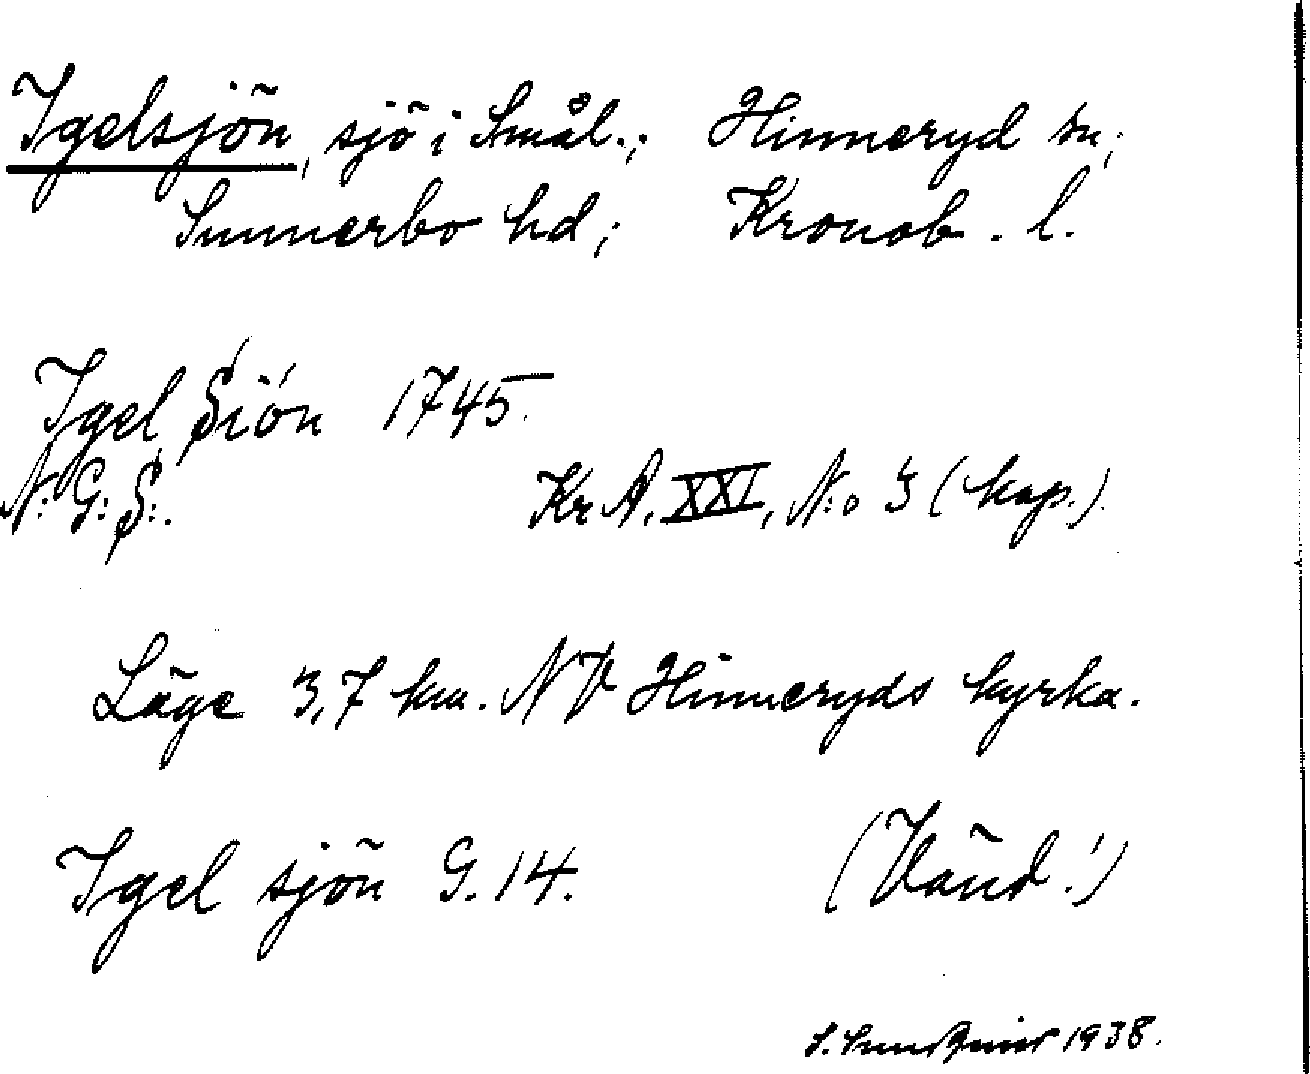 Igelsjön, sjö i Smål.; Hinneryd sn;
Sunnerbo hd; Kronob. l.
Igel Siön 1745.
N: G: S:.
Kr A. XXI, N:o 3 (kop.).
Läge 3,7 km. NV Hinneryds kyrka.
Igel sjön G. 14. (Vänd!)
S. 1938.